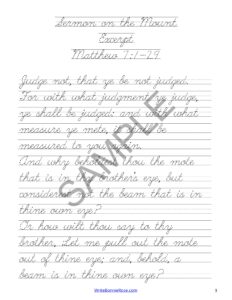 Sermon on the Mount
Excerpt
Matthew 7:1-29
Judge not, that ye be not judged.
For with what judgment ye judge,
ye shall be judged: and with what
measure ye mete, it shall be
measured to you again.
And why beholdest thou the mote
that is in thy brother's eye, but
considerest not the beam that is in
thine own eye?
Or how wilt thou say to thy
brother, Let me pull out the mote
out of thine eye; and, behold, a
beam is in thine own eye?
SAMPLE